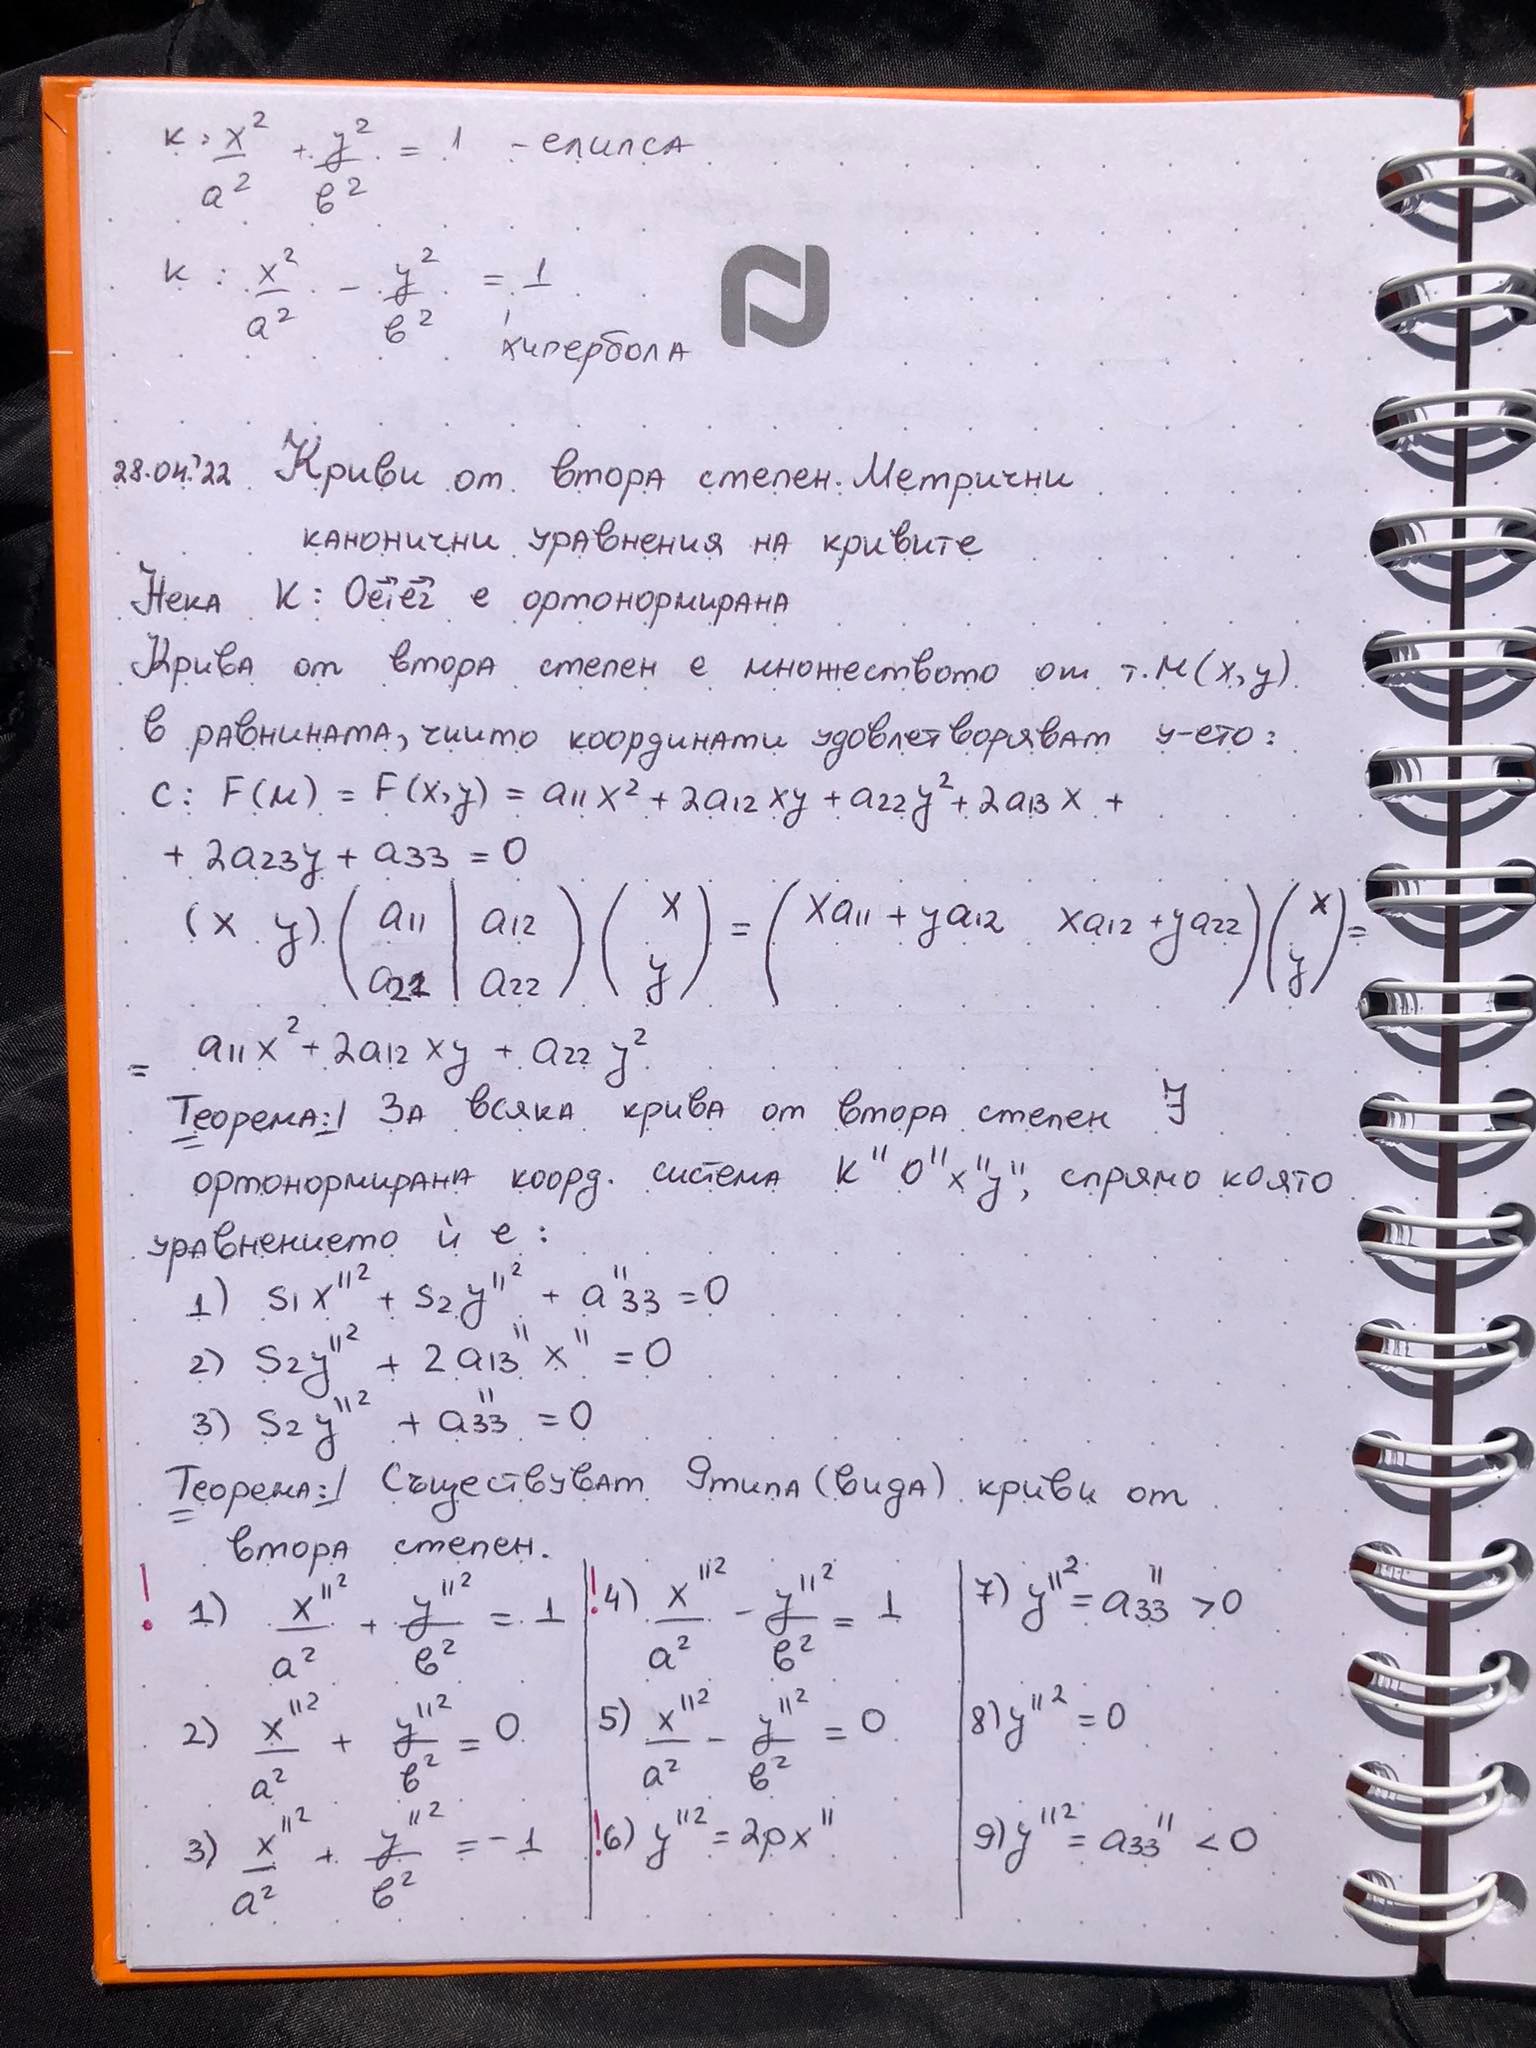 к: x²/a² + y²/в² = 1 - елипса
к: x²/a² - y²/в² = 1
хипербола
28.04.'22 Криви от втора степен. Метрични
канонични уравнения на кривите
Нека К: Oe₁⃗e₂⃗ е ортонормирана
Крива от втора степен е множеството от т. М(x,y)
в равнината, чиито координати удовлетворяват у-ето:
c: F(M) = F(x,y) = a₁₁x² + 2a₁₂xy + a₂₂y² + 2a₁₃x +
+ 2a₂₃y + a₃₃ = 0
(x y) (a₁₁ | a₁₂ ; a₂₁ | a₂₂) (x ; y) = (xa₁₁ + ya₁₂ xa₁₂ + ya₂₂) (x ; y) =
= a₁₁x² + 2a₁₂xy + a₂₂y²
Теорема:/ За всяка крива от втора степен ∃
ортонормирана коорд. система К" O"x"y", спрямо която
уравнението ѝ е:
1) s₁x"² + s₂y"² + a"₃₃ = 0
2) s₂y"² + 2a₁₃"x" = 0
3) s₂y"² + a"₃₃ = 0
Теорема:/ Съществуват 9 типа (вида) криви от
втора степен.
! 1) x"²/a² + y"²/в² = 1
2) x"²/a² + y"²/в² = 0
3) x"²/a² + y"²/в² = -1
! 4) x"²/a² - y"²/в² = 1
5) x"²/a² - y"²/в² = 0
! 6) y"² = 2px"
7) y"² = a₃₃" > 0
8) y"² = 0
9) y"² = a₃₃" < 0